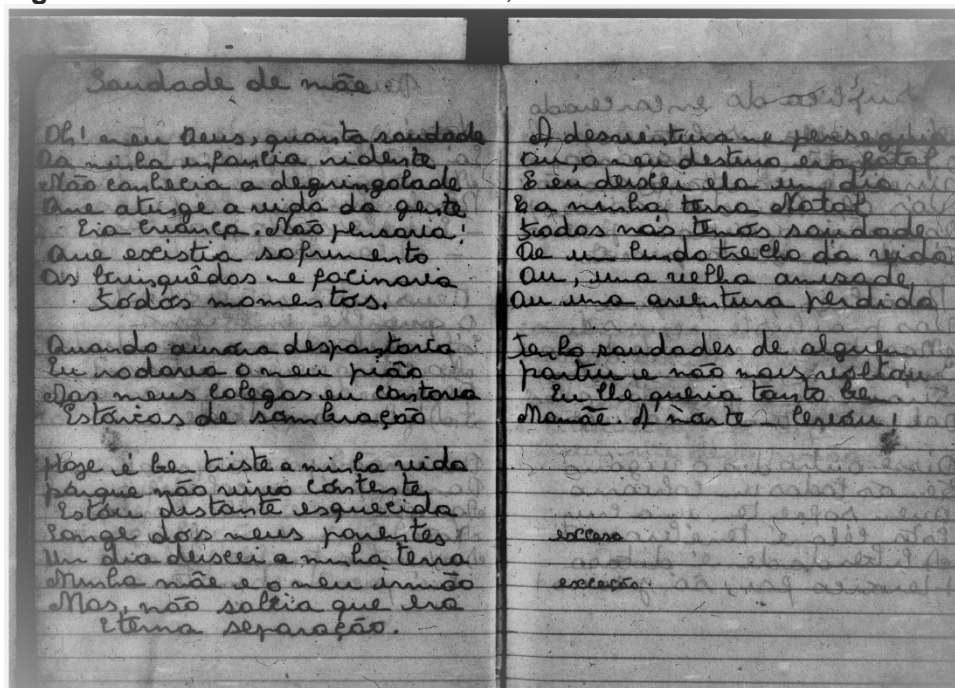 Saudade de mãe
Oh! meu Deus, quanta saudade
Da minha infancia ridente
Não conhecia a degringolade
Que atinge a vida da gente
Era criança. Não pensava!
Que existia sofrimento
Os brinquêdos me facinava
todos momentos.
Quando aurora despontava
Eu rodava o meu pião
Aos meus colegas eu contava
Estórias de sombração
Hoje é bem triste a minha vida
porque não vivo contente
Estou distante esquecida
Longe dos meus parentes
Um dia deixei a minha terra
Minha mãe e o meu irmão
Mas, não sabia que era
Eterna separação.
A desventura me perseguia
Ou, o meu destino era fatal
E eu deixei ela um dia
E a minha terra Natal
todos nós temos saudade
De um lindo trecho da vida
Ou, uma velha amisade
Ou uma aventura perdida
Tenho saudades de alguem
partiu e não mais voltou
Eu lhe queria tanto bem
Mamãe. A morte – levou!
excesso
exceção.